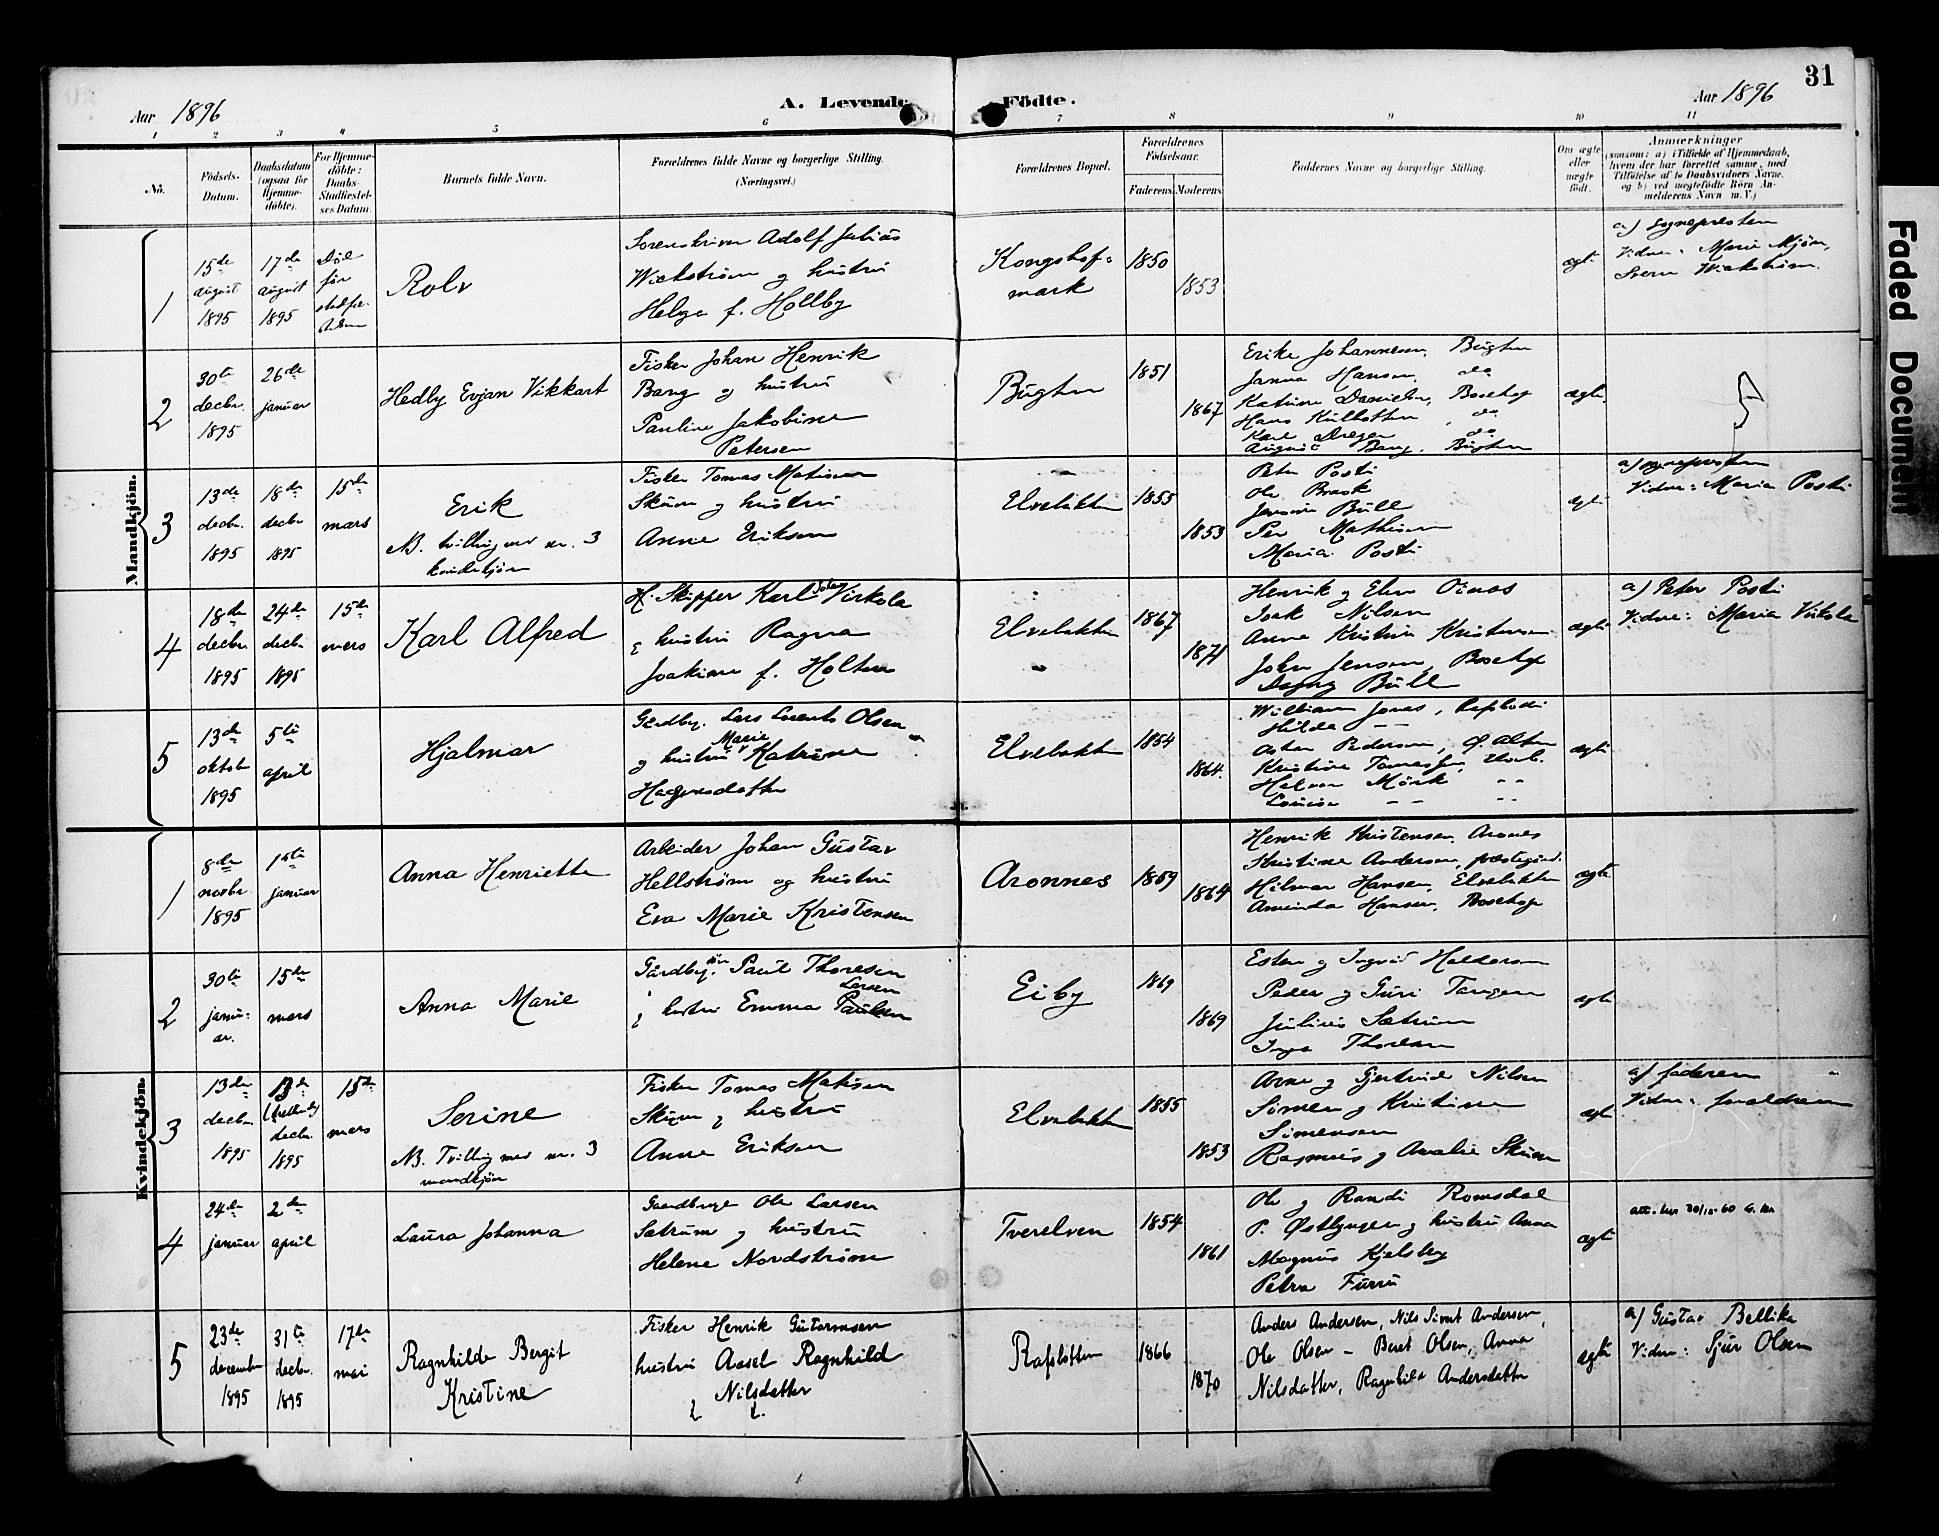 31
Aar 1896
A. Levende Födte.
Aar 1896
1 2 3 4 5 6 7 8 9 10 11
No.
Födsels-
Datum.
Daabsdatum
(ogsaa for
Hjemme-
döbte).
For Hjemme-
döbte:
Daabs-
Stadfæstel-
ses Datum.
Barnets fulde Navn.
Forældrenes fulde Navne og borgerlige Stilling.
(Næringsvei.)
Forældrenes Bopæl.
Forældrenes
Födselsaar.
Faderens. Moderens.
Faddernes Navne og borgerlige Stilling.
Om ægte
eller
uægte
født.
Anmærkninger
(saasom: a) i Tilfælde af Hjemmedaab,
hvem der har forrettet samme, med
Tilföielse af to Daabsvidners Navne.
og b) ved uægtefödte Börn An-
melderens Navn m. V.)
Mandkjön.
1
15de
august
1895
17de
august
1895
Död
før
stadfæ-
Rolv
Sorenskriver Adolf Julius
Wickstrøm og hustru
Helga f. Hollby
Kongshof-
mark
1850
1853
ægte
a) Sognepresten
Vidner: Marie Mjøen,
Wickstrøm.
2
30te
decbr.
1895
26de
januar
Hedly Evjan Vikkart
Fisker Johan Henrik
Bang og hustru
Pauline Jakobine
Petersen
Bugten
1851
1867
Erike Johannesen, Bugten
Janna Hansen, do
Katrine Danielsen, Bosekop
Hans Killotten, do
Karl Dreyer do
August Bang, Bugten
ægte.
3
13de
decbr.
1895
18de
decbr
1895
15de
mars
Erik
NB. tvilling med nr. 3
kvindekjøn
Fisker Tomas Matisen
Skum og hustru
Anne Eriksen
Elvebakken
1855
1853
Peter Posti
Ole Brask
Bull
Per Mathisen
Maria Posti
ægte
a) sognepresten
Vidne: Maria Posti
4
18de
decbr.
1895
24de
decbr
1895
15de
mars
Karl Alfred
H. Skipper Karl Johan Virkola
& hustru Ragna
Joakime f. Holten
Elvebakken
1867
1871
Henrik og Elen Oinas
Isak Nilsen
Anne Kristine Kristensen
John Jensen, Bosekop
Dagny Bull
ægte
a) Peter Posti
Vidne: Maria Virkola
5
13de
oktober
1895
5te
april
Hjalmar
Gårdbr. Lars Lorents Olsen
og hustru Marie Katrine
Hagensdatter
Elvebakken
1854
1864.
William Jonas, Rafsbotn
Hilda — —
Pedersen, Ø. Alten
Kristine Tomassen, Elveb.
Halvor Mörk " "
Louise — — " "
ægte
Kvindekjön.
1
8de
novbr.
1895
1ste
januar
Anna Henriette
Arbeider Johan Gustav
Hellstrøm og hustru
Eva Marie Kristensen
Aronnes
1859
1864
Henrik Kristensen, Arones
Kristine Andersen, præstegård.
Hilmar Hansen, Elvebakken
Aminda Hansen, Bosekop
ægte
2
30te
janu-
ar.
15de
mars
Anna Marie
Gårdbr. søn Paul Thoresen
& hustru Emma Larsen Paulsen
Eiby
1869
1869
Esten og Ingrid Haldorsen
Peder og Guri Tangen
Julius Sætrum
Inga Thoresen
ægte
3
13de
decbr.
1895
13de
decbr.
1895
15de
mars
Serine
NB. Tvilling med nr. 3
mandkjøn
Fisker Tomas Matisen
Skum & hustru
Anne Eriksen
Elvebakken
1855
1853
Arne og Gjertrude Nilsen
Simen og Kristine
Simensen
Rasmus og Amalie Skum
ægte
a) faderen
Vidner: forældrene
4
24de
januar
2den
april
Laura Johanna
Gaardbruger Ole Larsen
Sætrum og hustru
Helene Nordstrøm
Tverelven
1854
1861
Ole og Randi Romsdal
P. Østlyngen og hustru Anna
Magnus Kjelsberg
Petra Furru
ægte
5
23de
december
1895
31te
decbr.
1895
17de
mai
Ragnhilde Bergit
Kristine
Fisker Henrik Gustavsen
& hustru Aasel Ragnhild
Nilsdatter
Rafsbotten
1866
1870
Anders Andersen, Nils Simit Andersen,
Ole Olsen — Beret Olsen, Anna
Nilsdatter, Ragnhild Andersdatter
ægte
a) Gustav Bellika
Vidne: Sjur Olsen
Faded Document